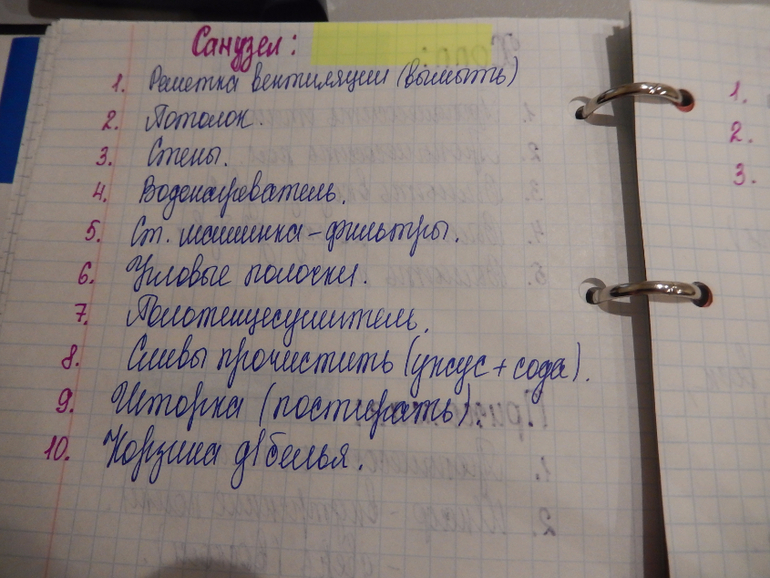 Санузел:
1. Решетка вентиляции (вымыть)
2. Потолок.
3. Стены.
4. Водонагреватель.
5. Ст. машинка – фильтры.
6. Угловые полочки.
7. Полотенцесушитель.
8. Сливы прочистить (уксус + сода).
9. Шторка (постирать).
10. Корзина д/белья.
1.
2.
3.